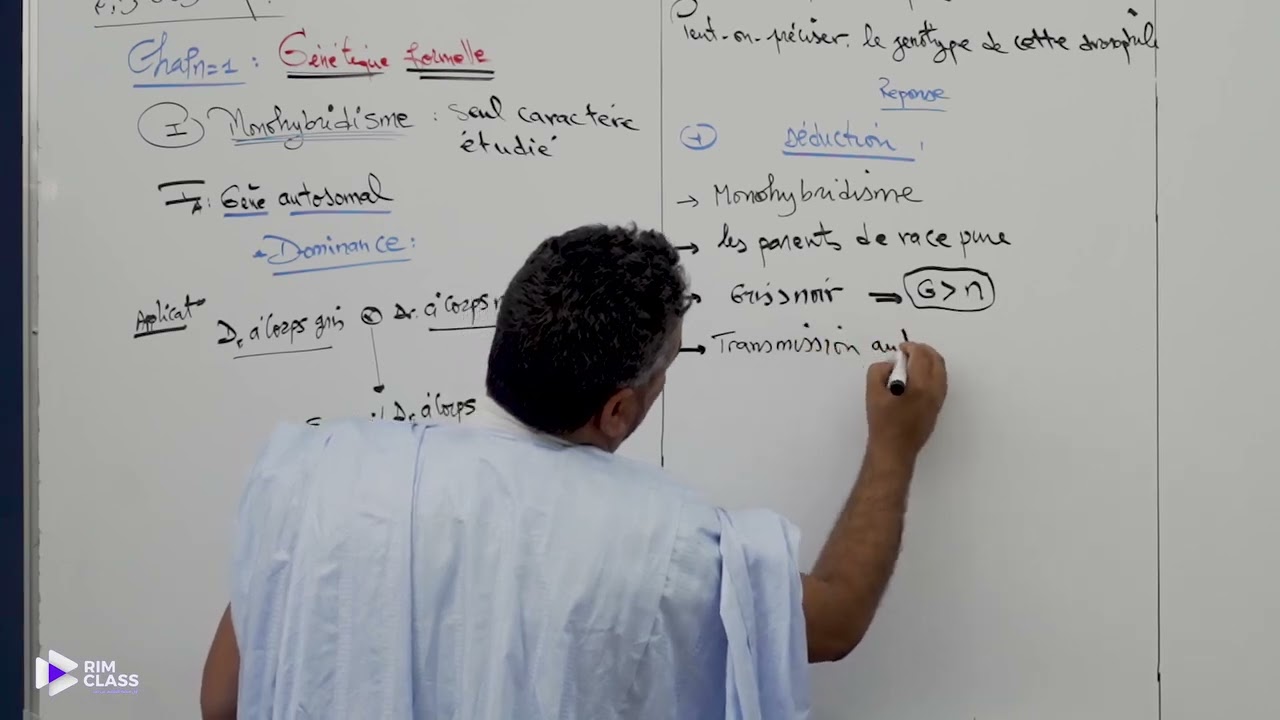 Chap n=1 : Génétique formelle
I Monohybridisme : Seul caractère
étudié
I A: Gène autosomal
Dominance:
Applicat°
Dr à corps gris Dr. à corps
Dr à corps
Peut-on-préciser. le génotype de cette drosophile
Reponse
+ déduction :
→ Monohybridisme
→ les parents de race pure
Gris > noir ⇒ G > n
→ Transmission aut
RIM
CLASS